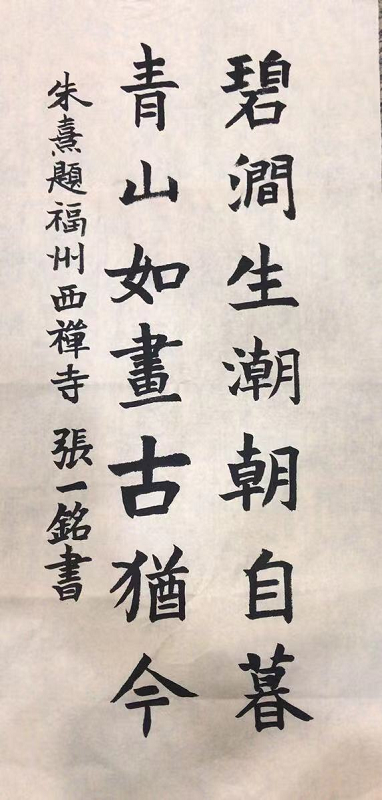 碧澗生潮朝自暮
青山如畫古猶今
朱熹題福州西禪寺 張一銘書